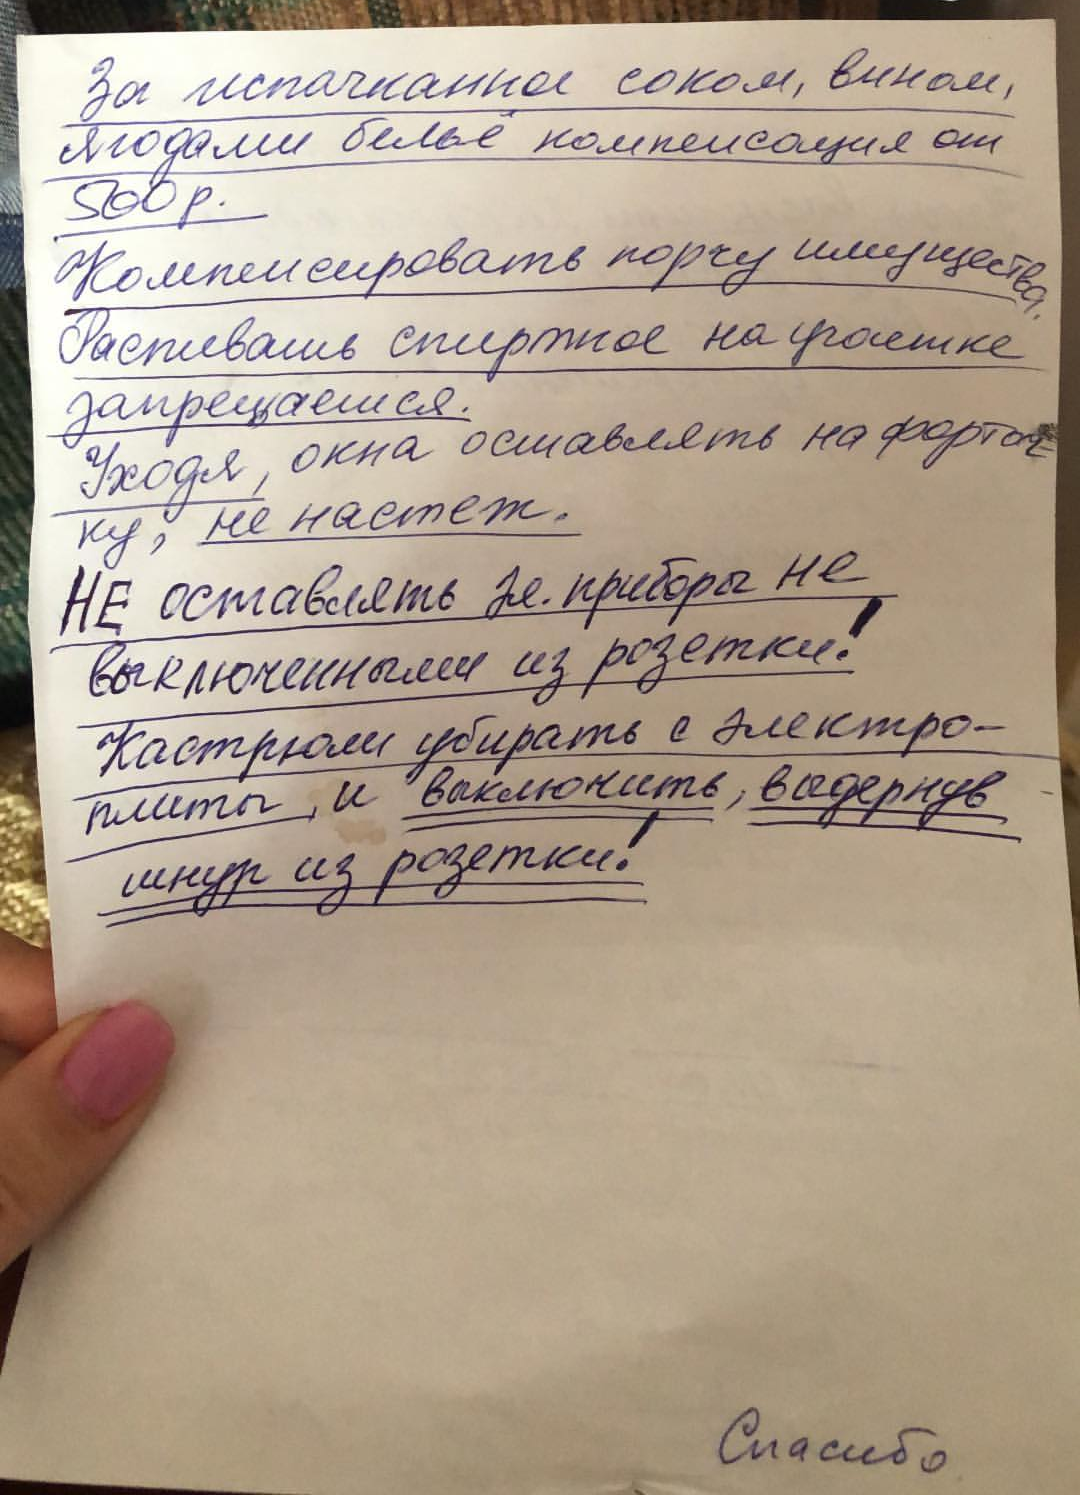 За испачканное соком, вином,
ягодами бельё компенсация от
500 р.
Компенсировать порчу имущества.
Распивать спиртное на участке
запрещается.
Уходя, окна оставлять на форточ-
ку, не настеж.
НЕ оставлять эл. приборы не
выключенными из розетки!
Кастрюли убирать с электро-
плиты, и выключить, выдернув
шнур из розетки!
Спасибо